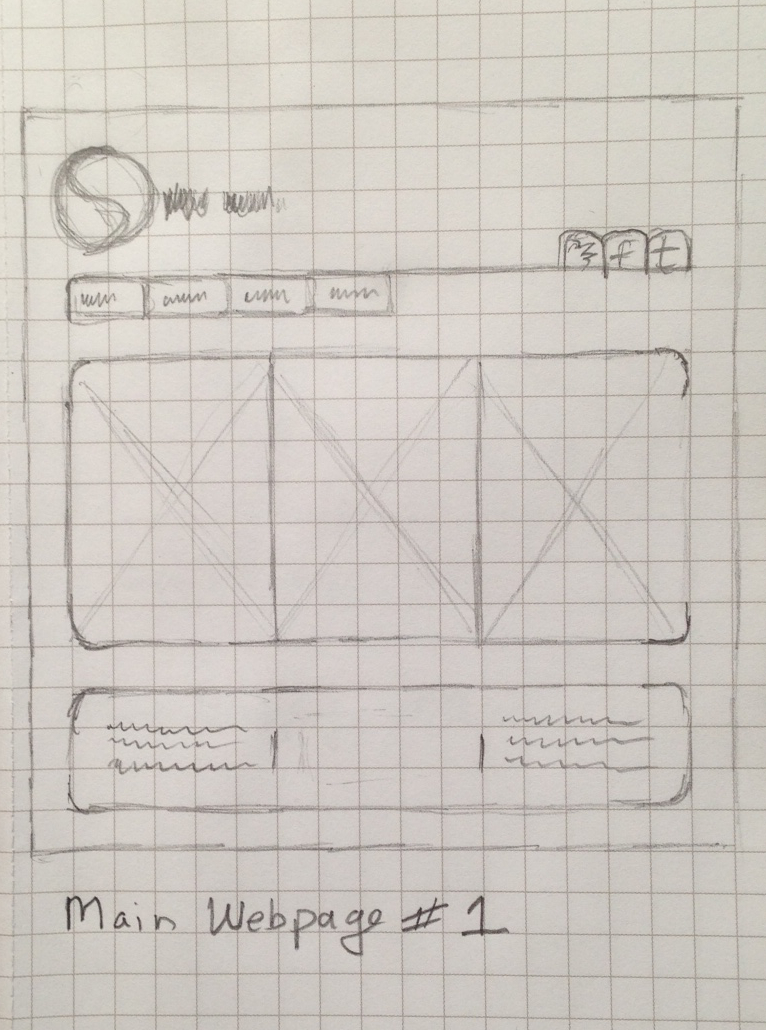 f t
Main Webpage # 1